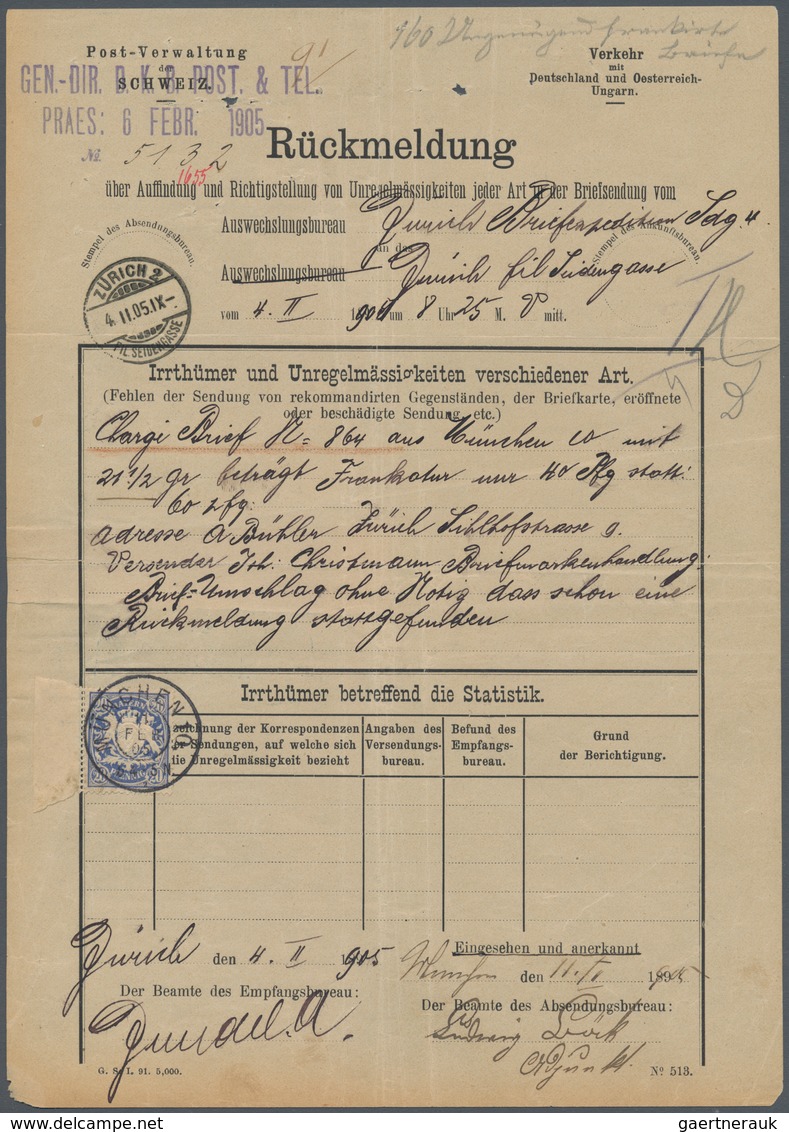 Post-Verwaltung
der
SCHWEIZ.
GEN.-DIR. D. K. B. POST. & TEL.
PRAES: 6 FEBR. 1905
№ 5132
1655
91
960 Ungenügend frankirte
Briefe
Verkehr
mit
Deutschland und Oesterreich-
Ungarn.
Rückmeldung
über Auffindung und Richtigstellung von Unregelmässigkeiten jeder Art in der Briefsendung vom
Auswechslungsbureau Zürich Briefexpedition Sdg 4
an das
Auswechslungsbureau Zürich fil Seidengasse
vom 4. II 1905 um 8 Uhr 25 M. V mitt.
Stempel des Absendungsbureau.
Stempel des Ankunftsbureau.
ZÜRICH 2
4. II.05.IX-
FIL. SEIDENGASSE
Irrthümer und Unregelmässigkeiten verschiedener Art.
(Fehlen der Sendung von rekommandirten Gegenständen, der Briefkarte, eröffnete
oder beschädigte Sendung, etc.)
Chargé Brief N= 864 aus München 10 mit
21 1/2 gr beträgt Frankatur nur 40 Pfg statt:
60 Pfg:
adresse A Bühler Zürich Sihlhofstrasse 9.
Versender Joh: Christmann Briefmarkenhandlung:
Brief-Umschlag ohne Notiz dass schon eine
Rückmeldung stattgefunden
Irrthümer betreffend die Statistik.
MÜNCHEN 10
FEB
05
zeichnung der Korrespondenzen
er Sendungen, auf welche sich
die Unregelmässigkeit bezieht
Angaben des
Versendungs-
bureau.
Befund des
Empfangs-
bureau.
Grund
der Berichtigung.
Zürich den 4. II 1905
Der Beamte des Empfangsbureau:
Eingesehen und anerkannt
München den 11. II 1905
Der Beamte des Absendungsbureau:
Ludwig Böck
Adjunkt.
G. S. I. 91. 5,000.
Nº 513.
gaertnerauk